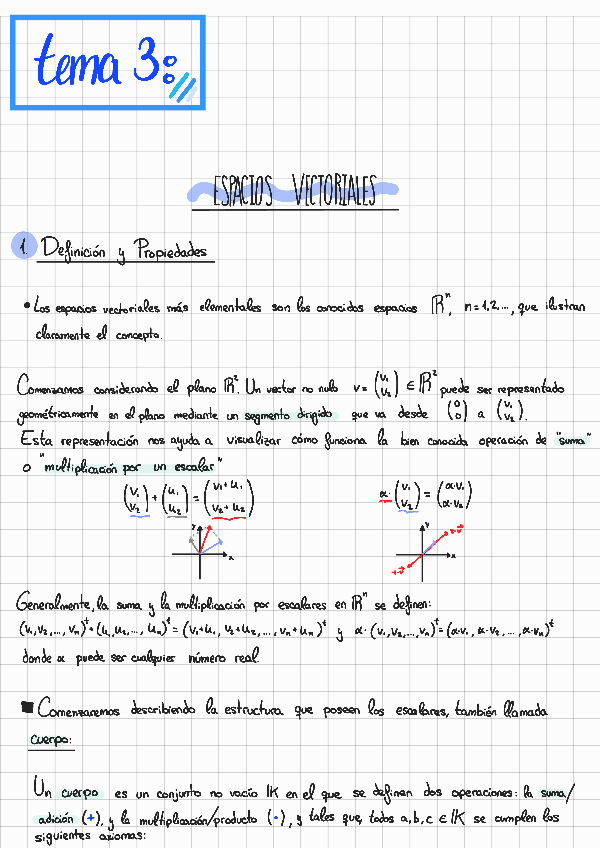 tema 3:
ESPACIOS VECTORIALES
1. Definición y Propiedades
• Los espacios vectoriales más elementales son los conocidos espacios ℝⁿ, n=1,2..., que ilustran
claramente el concepto.
Comenzamos considerando el plano ℝ². Un vector no nulo v = (v₁ v₂) ∈ ℝ² puede ser representado
geométricamente en el plano mediante un segmento dirigido que va desde (0 0) a (v₁ v₂).
Esta representación nos ayuda a visualizar cómo funciona la bien conocida operación de "suma"
o "multiplicación por un escalar"
(v₁ v₂) + (u₁ u₂) = (v₁+u₁ v₂+u₂)
α·(v₁ v₂) = (α·v₁ α·v₂)
y
x
y
x
Generalmente, la suma y la multiplicación por escalares en ℝⁿ se definen:
(v₁,v₂,...,vₙ)ᵗ+(u₁,u₂,...,uₙ)ᵗ=(v₁+u₁, v₂+u₂,...,vₙ+uₙ)ᵗ y α·(v₁,v₂,...,vₙ)ᵗ=(α·v₁, α·v₂,...,α·vₙ)ᵗ
donde α puede ser cualquier número real.
■ Comenzaremos describiendo la estructura que poseen los escalares, también llamada
cuerpo:
Un cuerpo es un conjunto no vacío 𝕂 en el que se definen dos operaciones: la suma/
adición (+), y la multiplicación/producto (·), y tales que, todos a,b,c ∈ 𝕂 se cumplen los
siguientes axiomas: